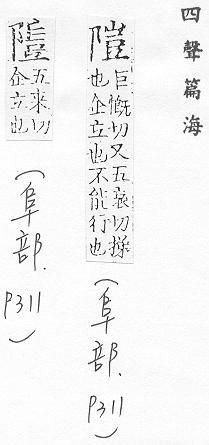 四聲篇海
隑
巨慨切又五哀切
也企立也不能行也
(阜部.P311)
五来切
企立也
(阜部.P311)